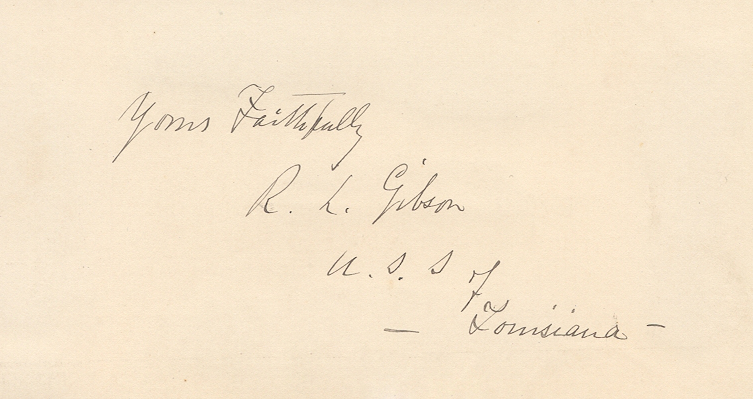 Yours Faithfully
R. L. Gibson
U. S. S of
— Louisiana —